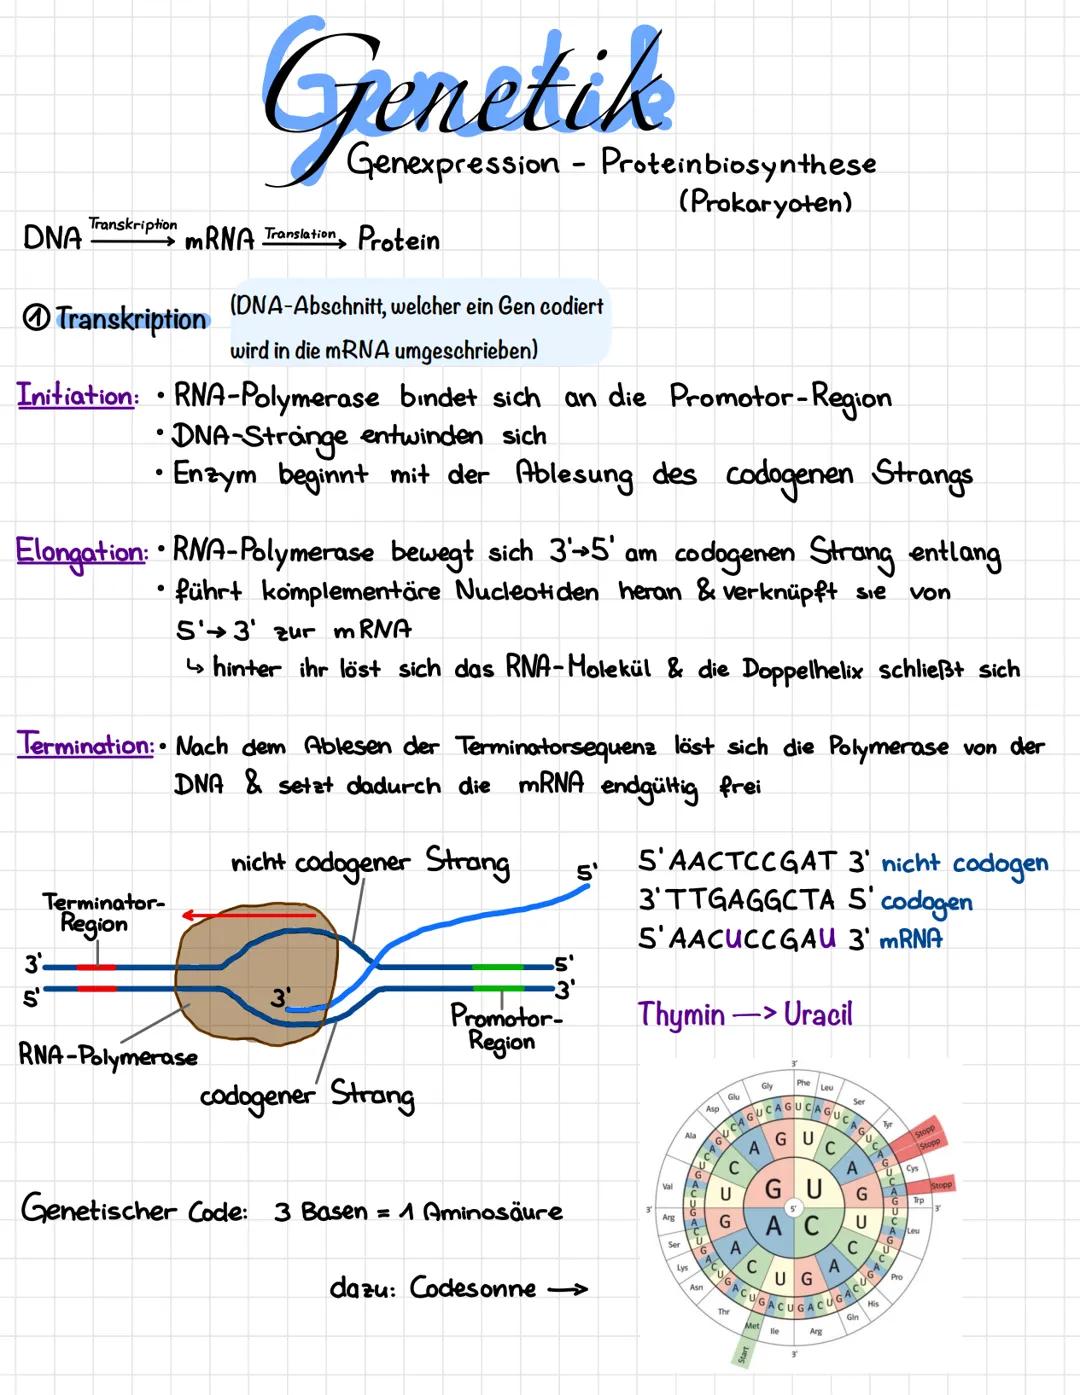 Genetik
Genexpression - Proteinbiosynthese
(Prokaryoten)
DNA Transkription mRNA Translation Protein
① Transkription
(DNA-Abschnitt, welcher ein Gen codiert
wird in die mRNA umgeschrieben)
Initiation: • RNA-Polymerase bindet sich an die Promotor-Region
• DNA-Stränge entwinden sich
• Enzym beginnt mit der Ablesung des codogenen Strangs
Elongation: • RNA-Polymerase bewegt sich 3'→5' am codogenen Strang entlang
• führt komplementäre Nucleotiden heran & verknüpft sie von
5'→ 3' zur mRNA
↳ hinter ihr löst sich das RNA-Molekül & die Doppelhelix schließt sich
Termination: • Nach dem Ablesen der Terminatorsequenz löst sich die Polymerase von der
DNA & setzt dadurch die mRNA endgültig frei
nicht codogener Strang
5'
Terminator-
Region
3'
5'
3'
5'
3'
Promotor-
Region
RNA-Polymerase
codogener Strang
5' AACTCCGAT 3' nicht codogen
3' TTGAGGCTA 5' codogen
5' AACUCCGAU 3' mRNA
Thymin —> Uracil
Genetischer Code: 3 Basen = 1 Aminosäure
dazu: Codesonne →
3'
Gly
Phe
Leu
Glu
Ser
Asp
Tyr
Stopp
Stopp
Ala
Cys
Stopp
Val
Trp
3'
3'
Arg
Leu
Ser
Lys
Pro
Asn
His
Thr
Gln
Met
Ile
Arg
Start
3'
G U
5'
A C
A G U C
C A
U G
G U
A C
C U G A